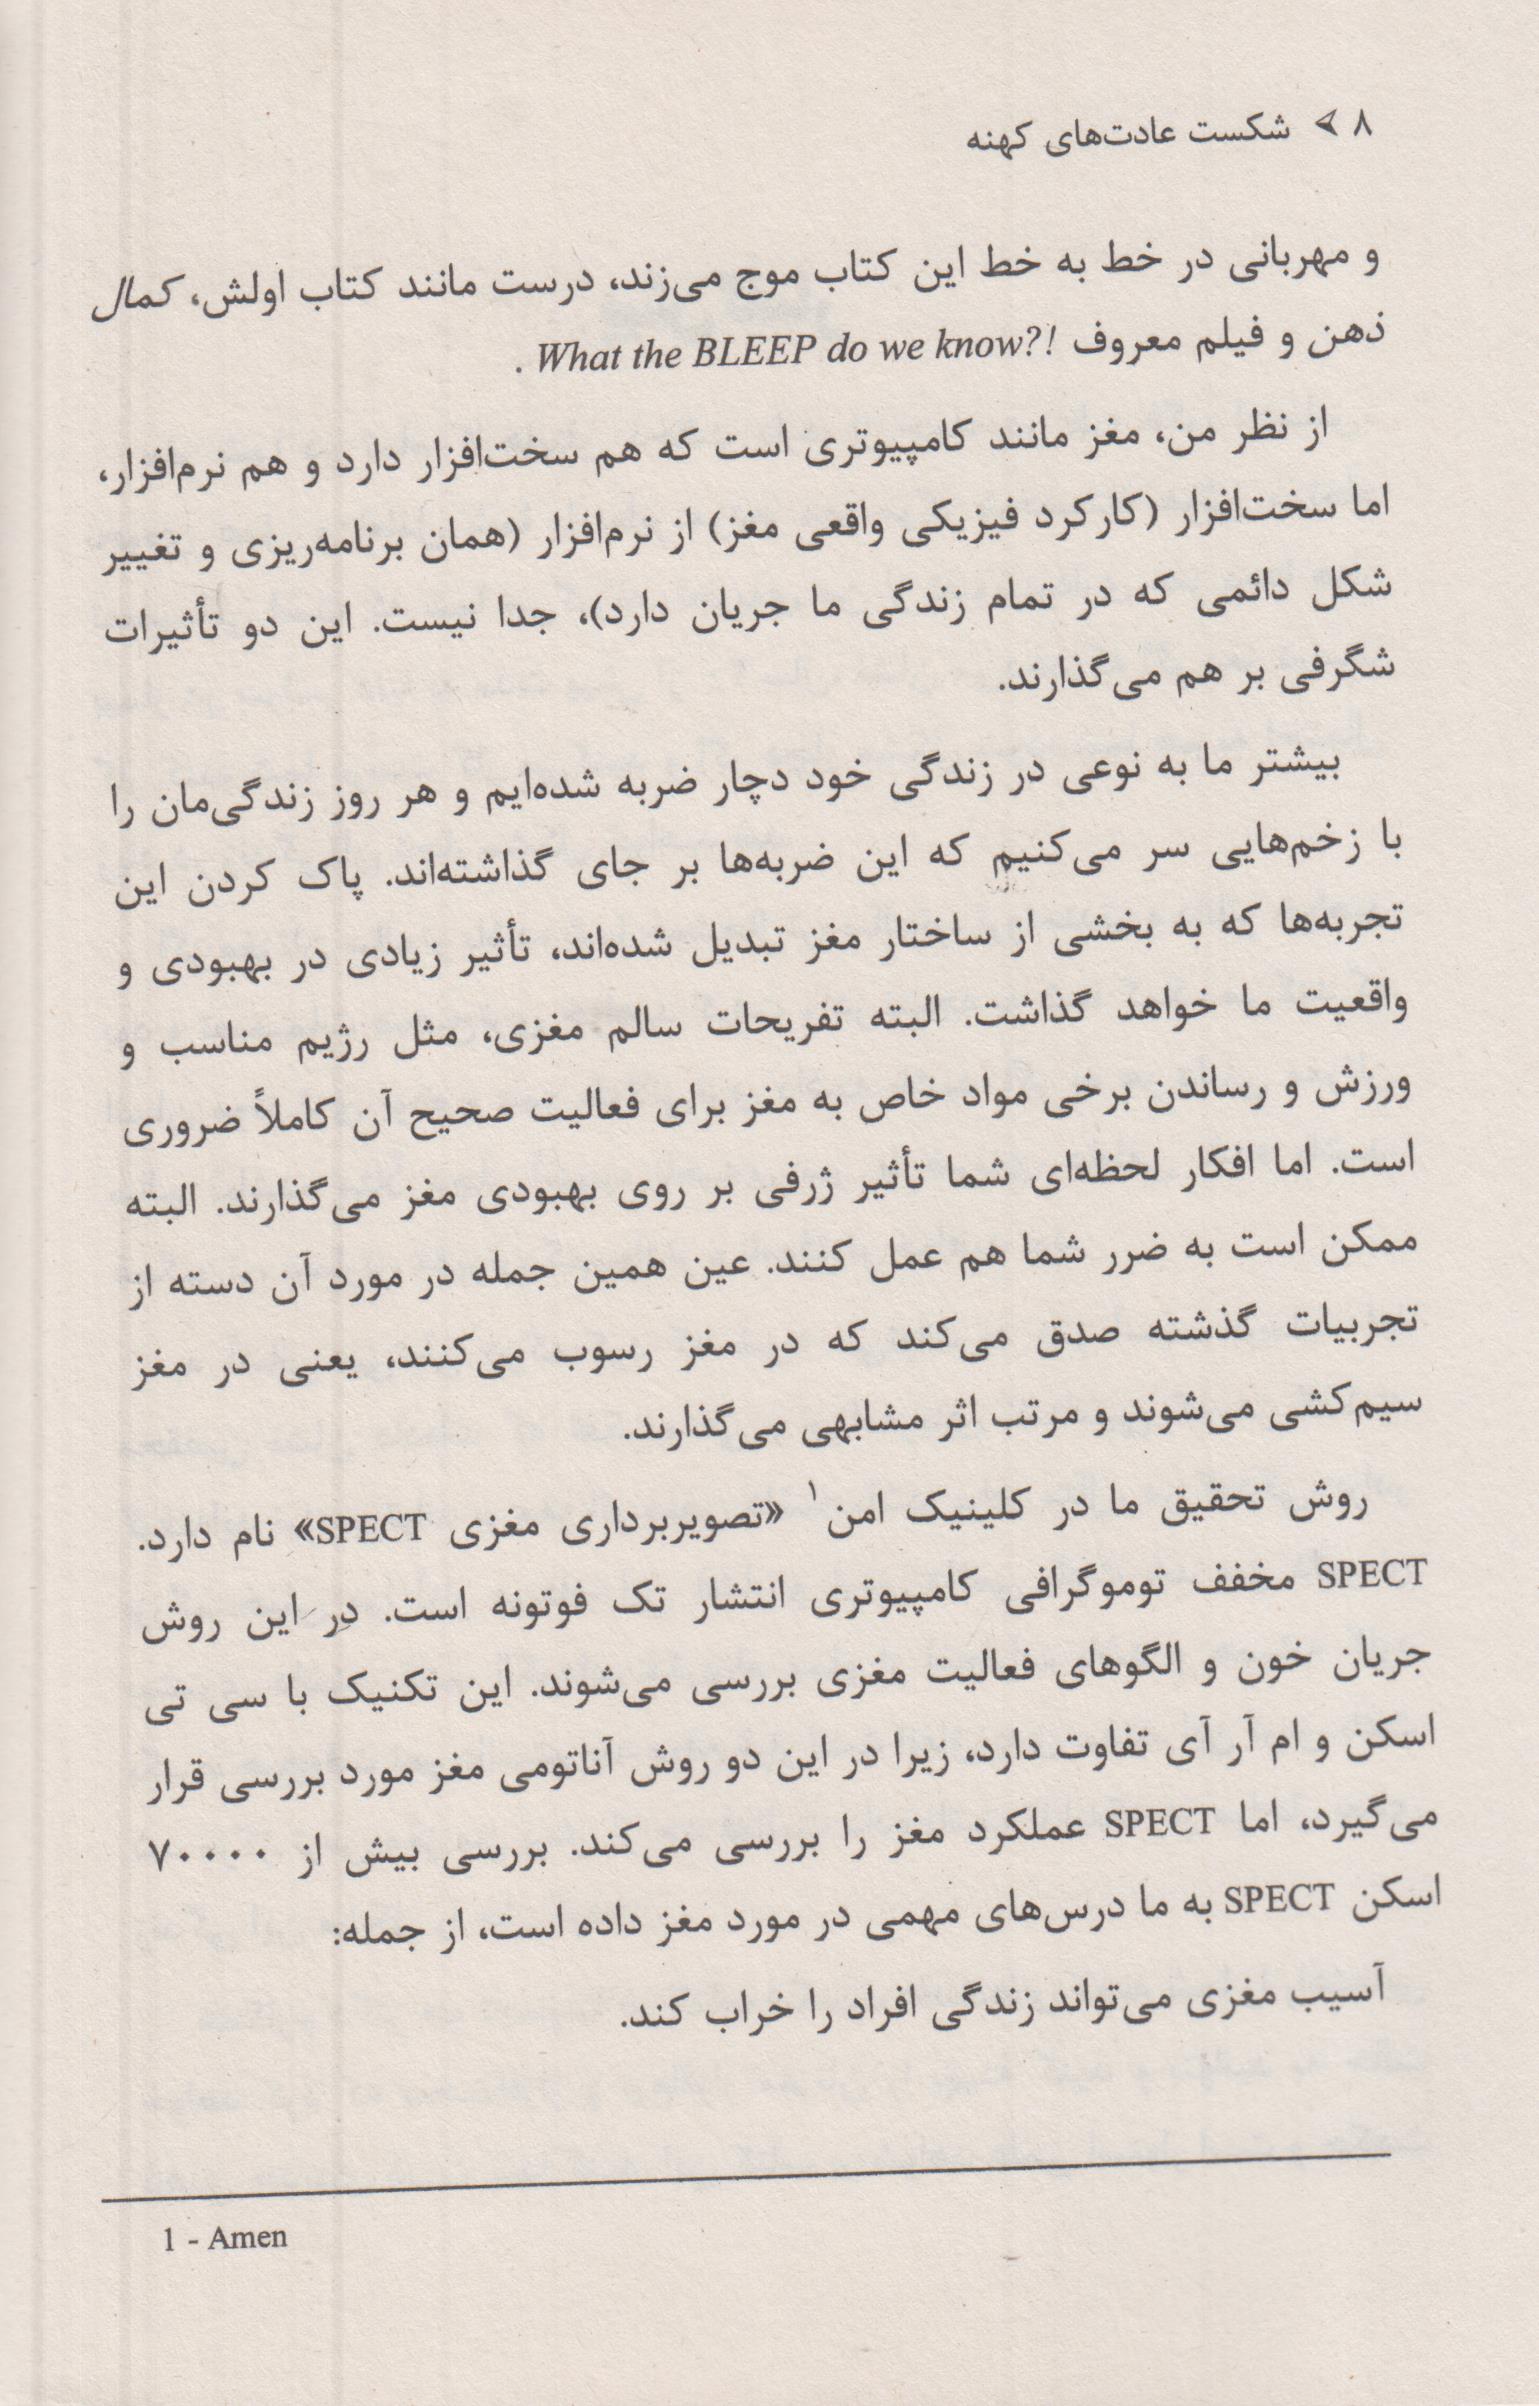 ۸ ➤ شکست عادت‌های کهنه
و مهربانی در خط به خط این کتاب موج می‌زند، درست مانند کتاب اولش، کمال
ذهن و فیلم معروف What the BLEEP do we know?! .
از نظر من، مغز مانند کامپیوتری است که هم سخت‌افزار دارد و هم نرم‌افزار،
اما سخت‌افزار (کارکرد فیزیکی واقعی مغز) از نرم‌افزار (همان برنامه‌ریزی و تغییر
شکل دائمی که در تمام زندگی ما جریان دارد)، جدا نیست. این دو تأثیرات
شگرفی بر هم می‌گذارند.
بیشتر ما به نوعی در زندگی خود دچار ضربه شده‌ایم و هر روز زندگی‌مان را
با زخم‌هایی سر می‌کنیم که این ضربه‌ها بر جای گذاشته‌اند. پاک کردن این
تجربه‌ها که به بخشی از ساختار مغز تبدیل شده‌اند، تأثیر زیادی در بهبودی و
واقعیت ما خواهد گذاشت. البته تفریحات سالم مغزی، مثل رژیم مناسب و
ورزش و رساندن برخی مواد خاص به مغز برای فعالیت صحیح آن کاملاً ضروری
است. اما افکار لحظه‌ای شما تأثیر ژرفی بر روی بهبودی مغز می‌گذارند. البته
ممکن است به ضرر شما هم عمل کنند. عین همین جمله در مورد آن دسته از
تجربیات گذشته صدق می‌کند که در مغز رسوب می‌کنند، یعنی در مغز
سیم‌کشی می‌شوند و مرتب اثر مشابهی می‌گذارند.
روش تحقیق ما در کلینیک امن۱ «تصویربرداری مغزی SPECT» نام دارد.
SPECT مخفف توموگرافی کامپیوتری انتشار تک فوتونه است. در این روش
جریان خون و الگوهای فعالیت مغزی بررسی می‌شوند. این تکنیک با سی تی
اسکن و ام آر آی تفاوت دارد، زیرا در این دو روش آناتومی مغز مورد بررسی قرار
می‌گیرد، اما SPECT عملکرد مغز را بررسی می‌کند. بررسی بیش از ۷۰۰۰۰
اسکن SPECT به ما درس‌های مهمی در مورد مغز داده است، از جمله:
آسیب مغزی می‌تواند زندگی افراد را خراب کند.
1 - Amen